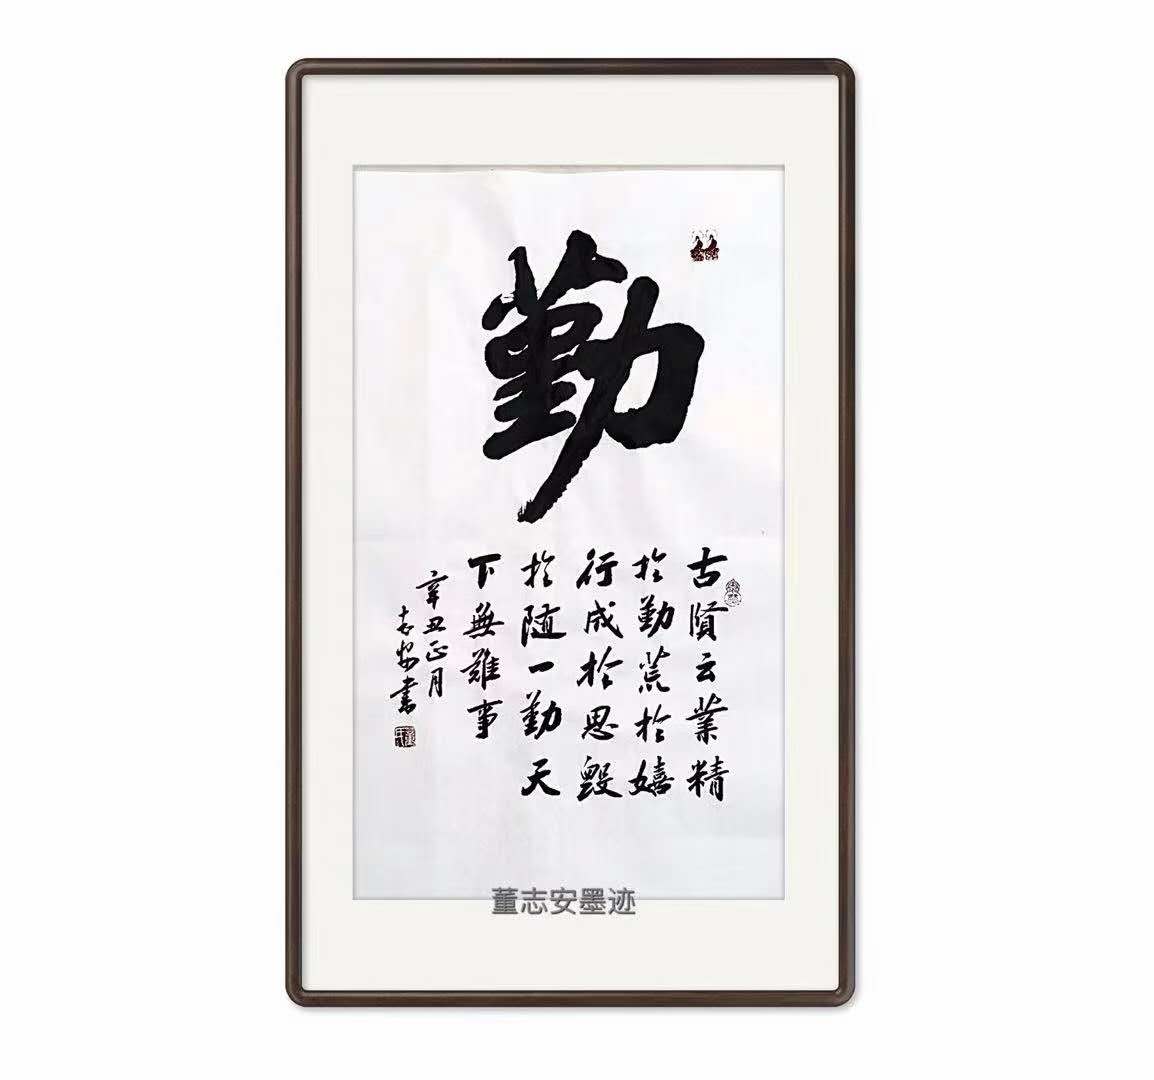 勤
古賢云業精
於勤荒於嬉
行成於思毀
於随一勤天
下無難事
辛丑正月
志安書
董志安墨迹